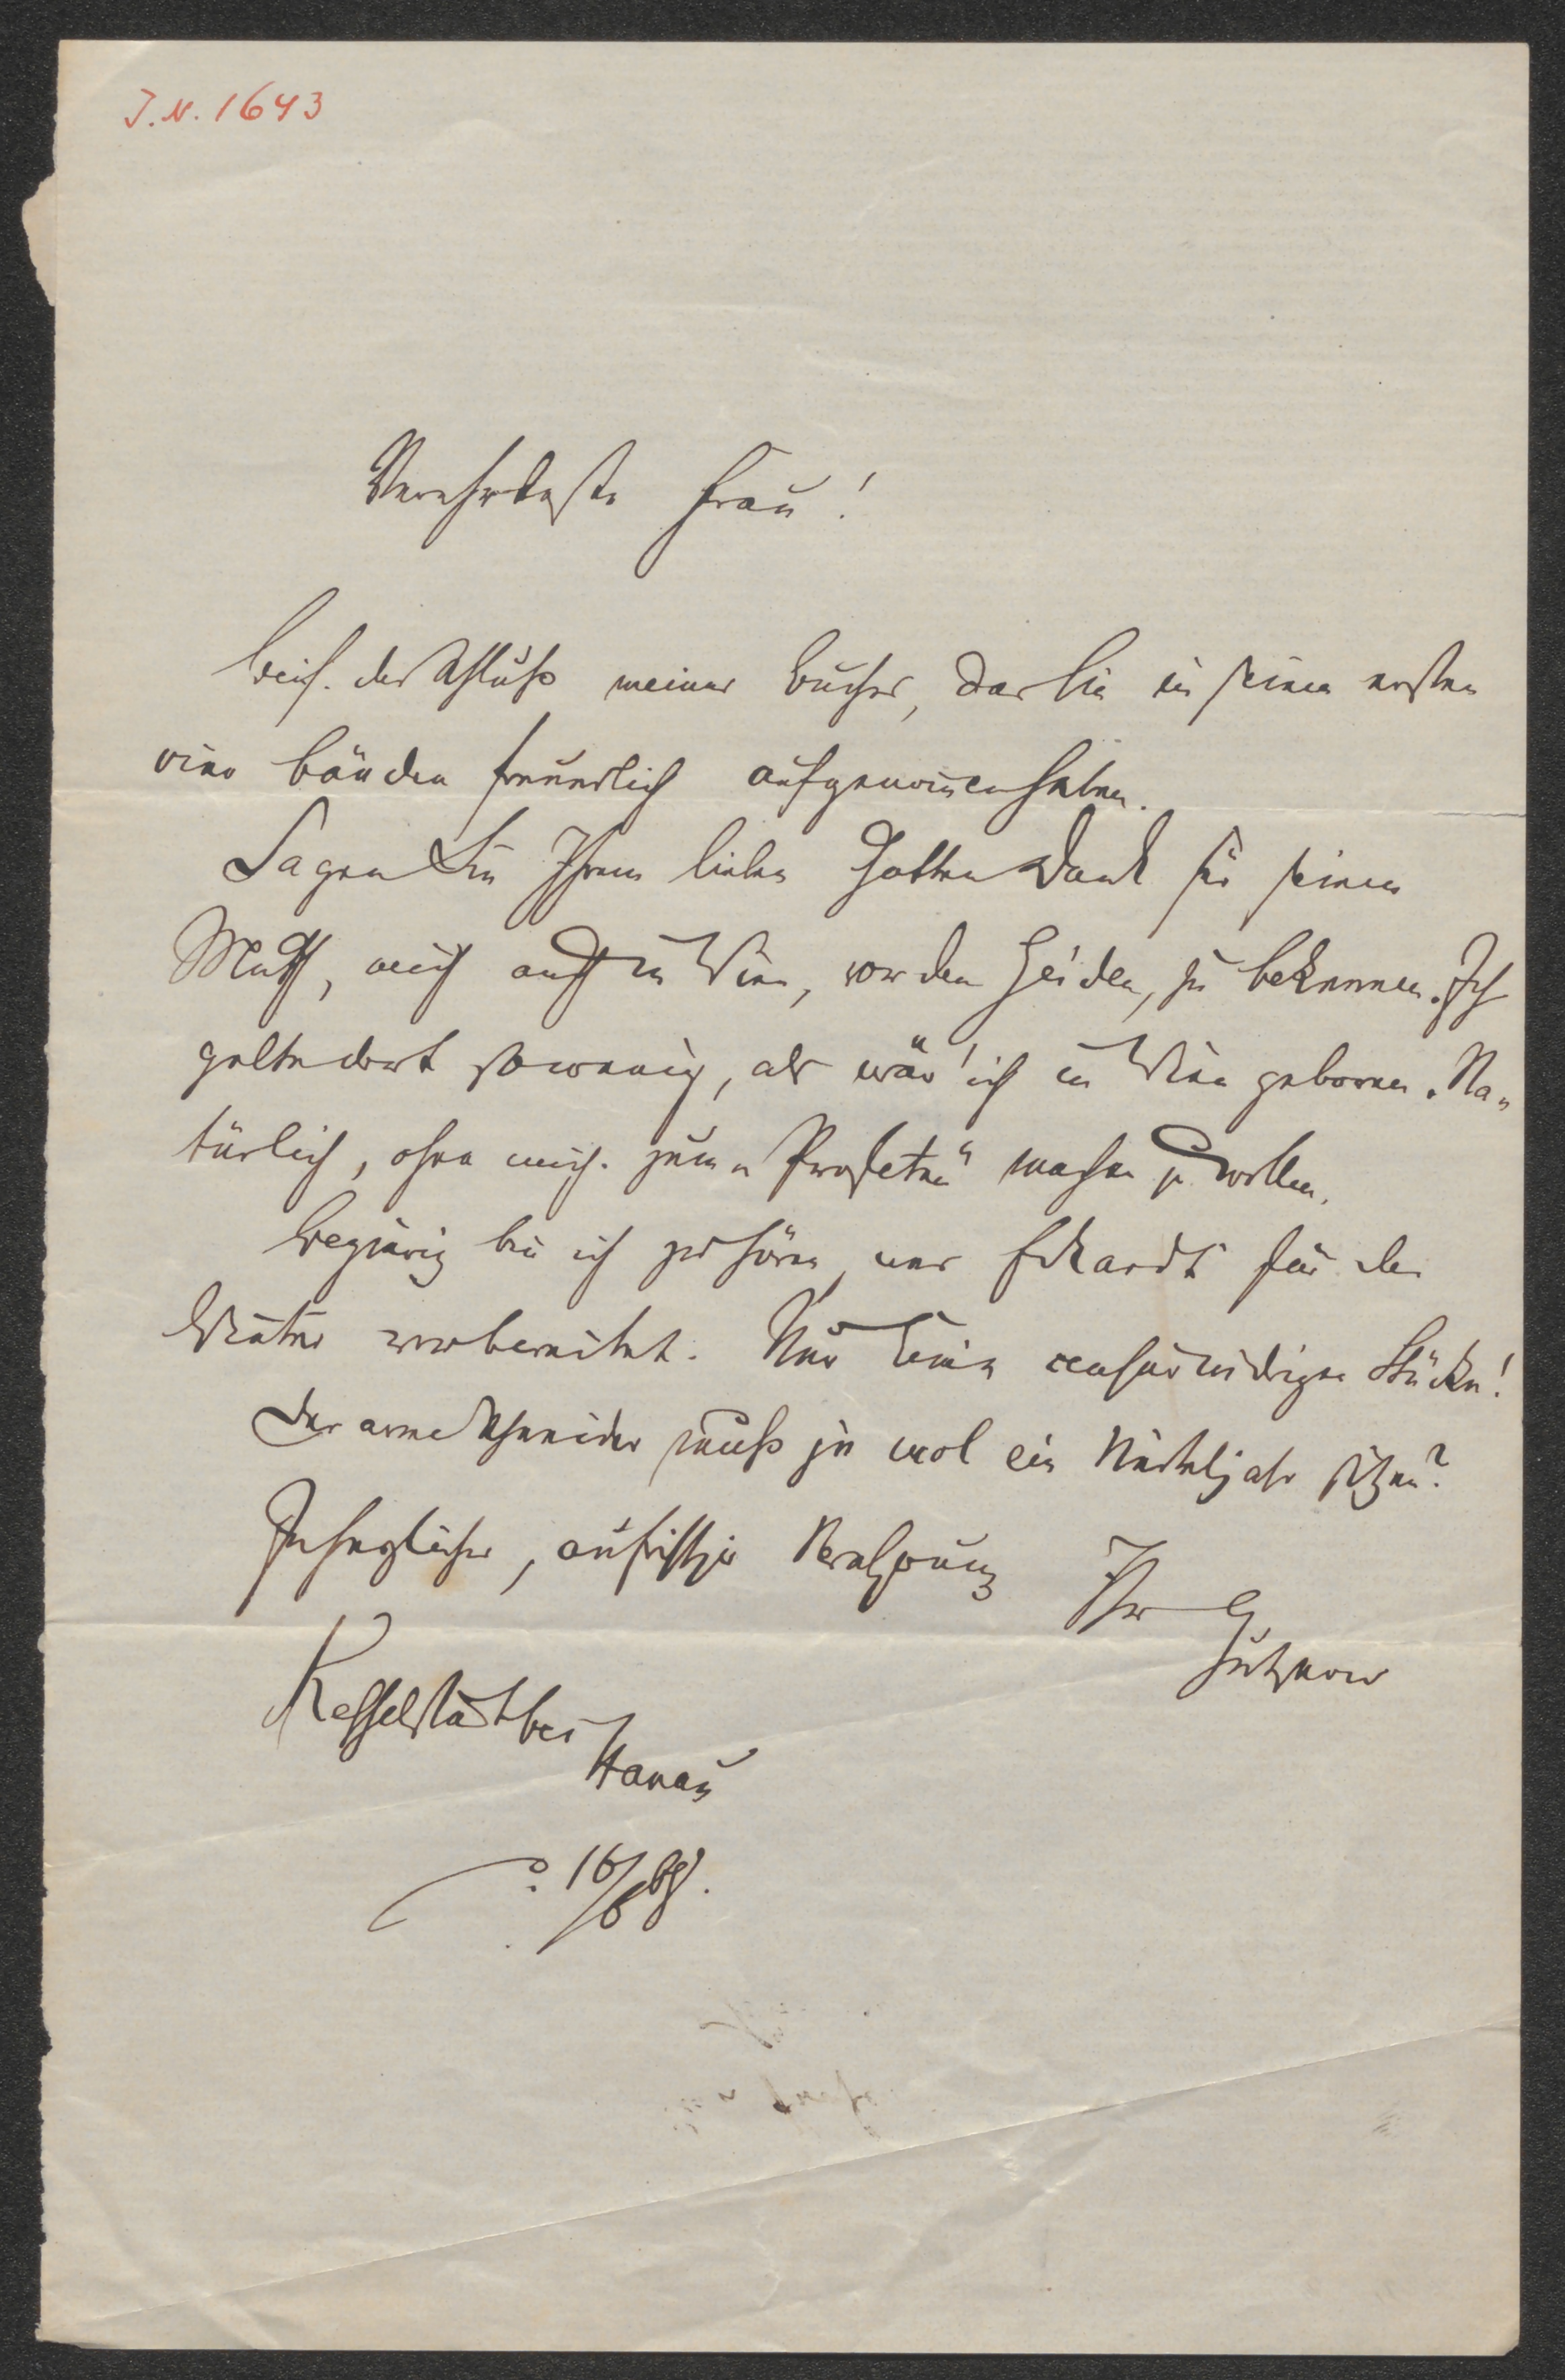 J. N. 1643
Verehrteste Frau!
Beif. der Schluß meines Buches, das Sie in seinen ersten
vier Bänden freundlich aufgenommen haben.
Sagen Sie Ihrem lieben Gatten Dank für seinen
Muth, mich auch in Wien, vor den Heiden, zu bekennen. Ich
gelte dort so wenig, als wär' ich in Wien geboren. Na-
türlich, ohne mich zum „Profeten“ machen zu wollen.
Begierig bin ich zu hören, was Eckardt für den
Winter vorbereitet. Nur keine censurwidrigen Stücke!
Der arme Schneider muß ja wol ein Vierteljahr sitzen?
In herzlicher, aufrichtiger Verehrung
Ihr G
Gutzkow
Kesselstadt bei
Hanau
d. 16/6 68.